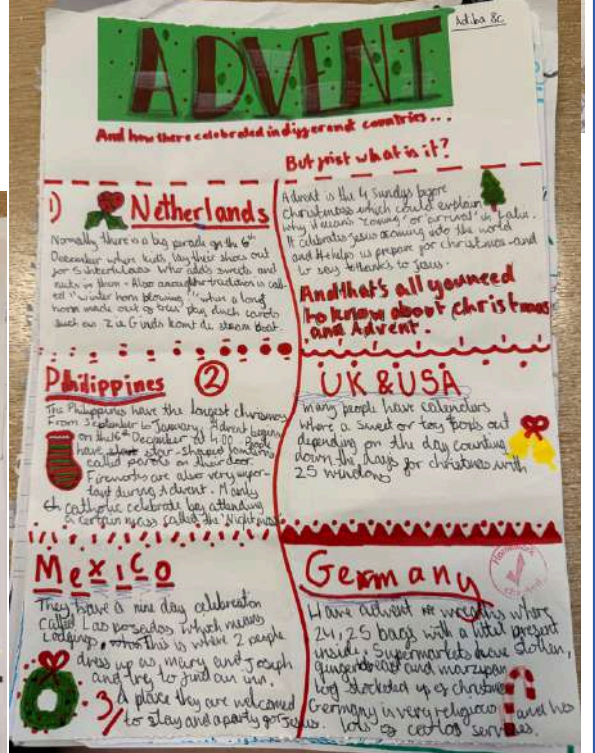 Adiba 8C
ADVENT
And how there celebrated in different countries...
But just what is it?
1) Netherlands
Normally there is a big parade on the 6th
December where kids lay their shoes out
for Sinterklaas who adds sweets and
nuts in them. Also another tradition is cal-
led "winter horn blowing" when a long
horn made out of trees play dutch carols
such as Zie Ginds komt de stoom boat.
Advent is the 4 Sundys before
christmass which could explain
why it means 'coming' or 'arrival' in Latin.
It celebrates Jesus coming into the world
and it helps us prepare for christmas and
to say to thanks to Jesus.
And that's all you need
to know about christmas
and Advent.
Philippines 2
The Philippines have the longest christmas
From September to January. Advent begins
on the 16th December at 4:00. People
have star-shaped lanterns
called parols on their door.
Fireworks are also very impor-
tant during Advent. Mainly
catholic celebrate by attending
a certain mass called the 'Night mass'
UK & USA
many people have calenders
where a sweet or toy pops out
depending on the day counting
down the days for christmas with
25 windows
Mexico
They have a nine day celebration
called Las posadas which means
Lodging. This is where 2 people
dress up as mary and Joseph
and try to find an inn.
3/ A place they are welcomed
to stay and a party for Jesus.
Germany
Have advent wreaths where
24, 25 bags with a littel present
inside, Supermarkets have Stollen,
gingerbread and marzipan
log stockded up of christmas
Germany is very religious and has
lots of carlos services.